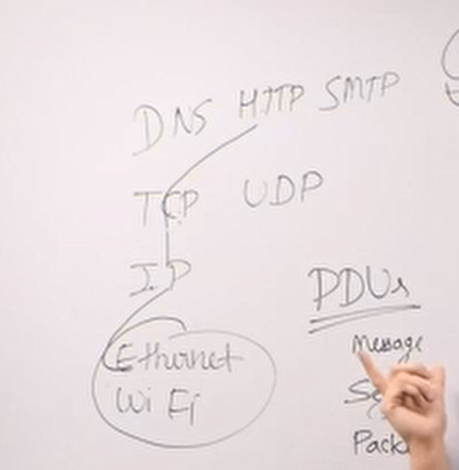 DNS HTTP SMTP
TCP UDP
IP
Ethernet
WiFi
PDUs
Message